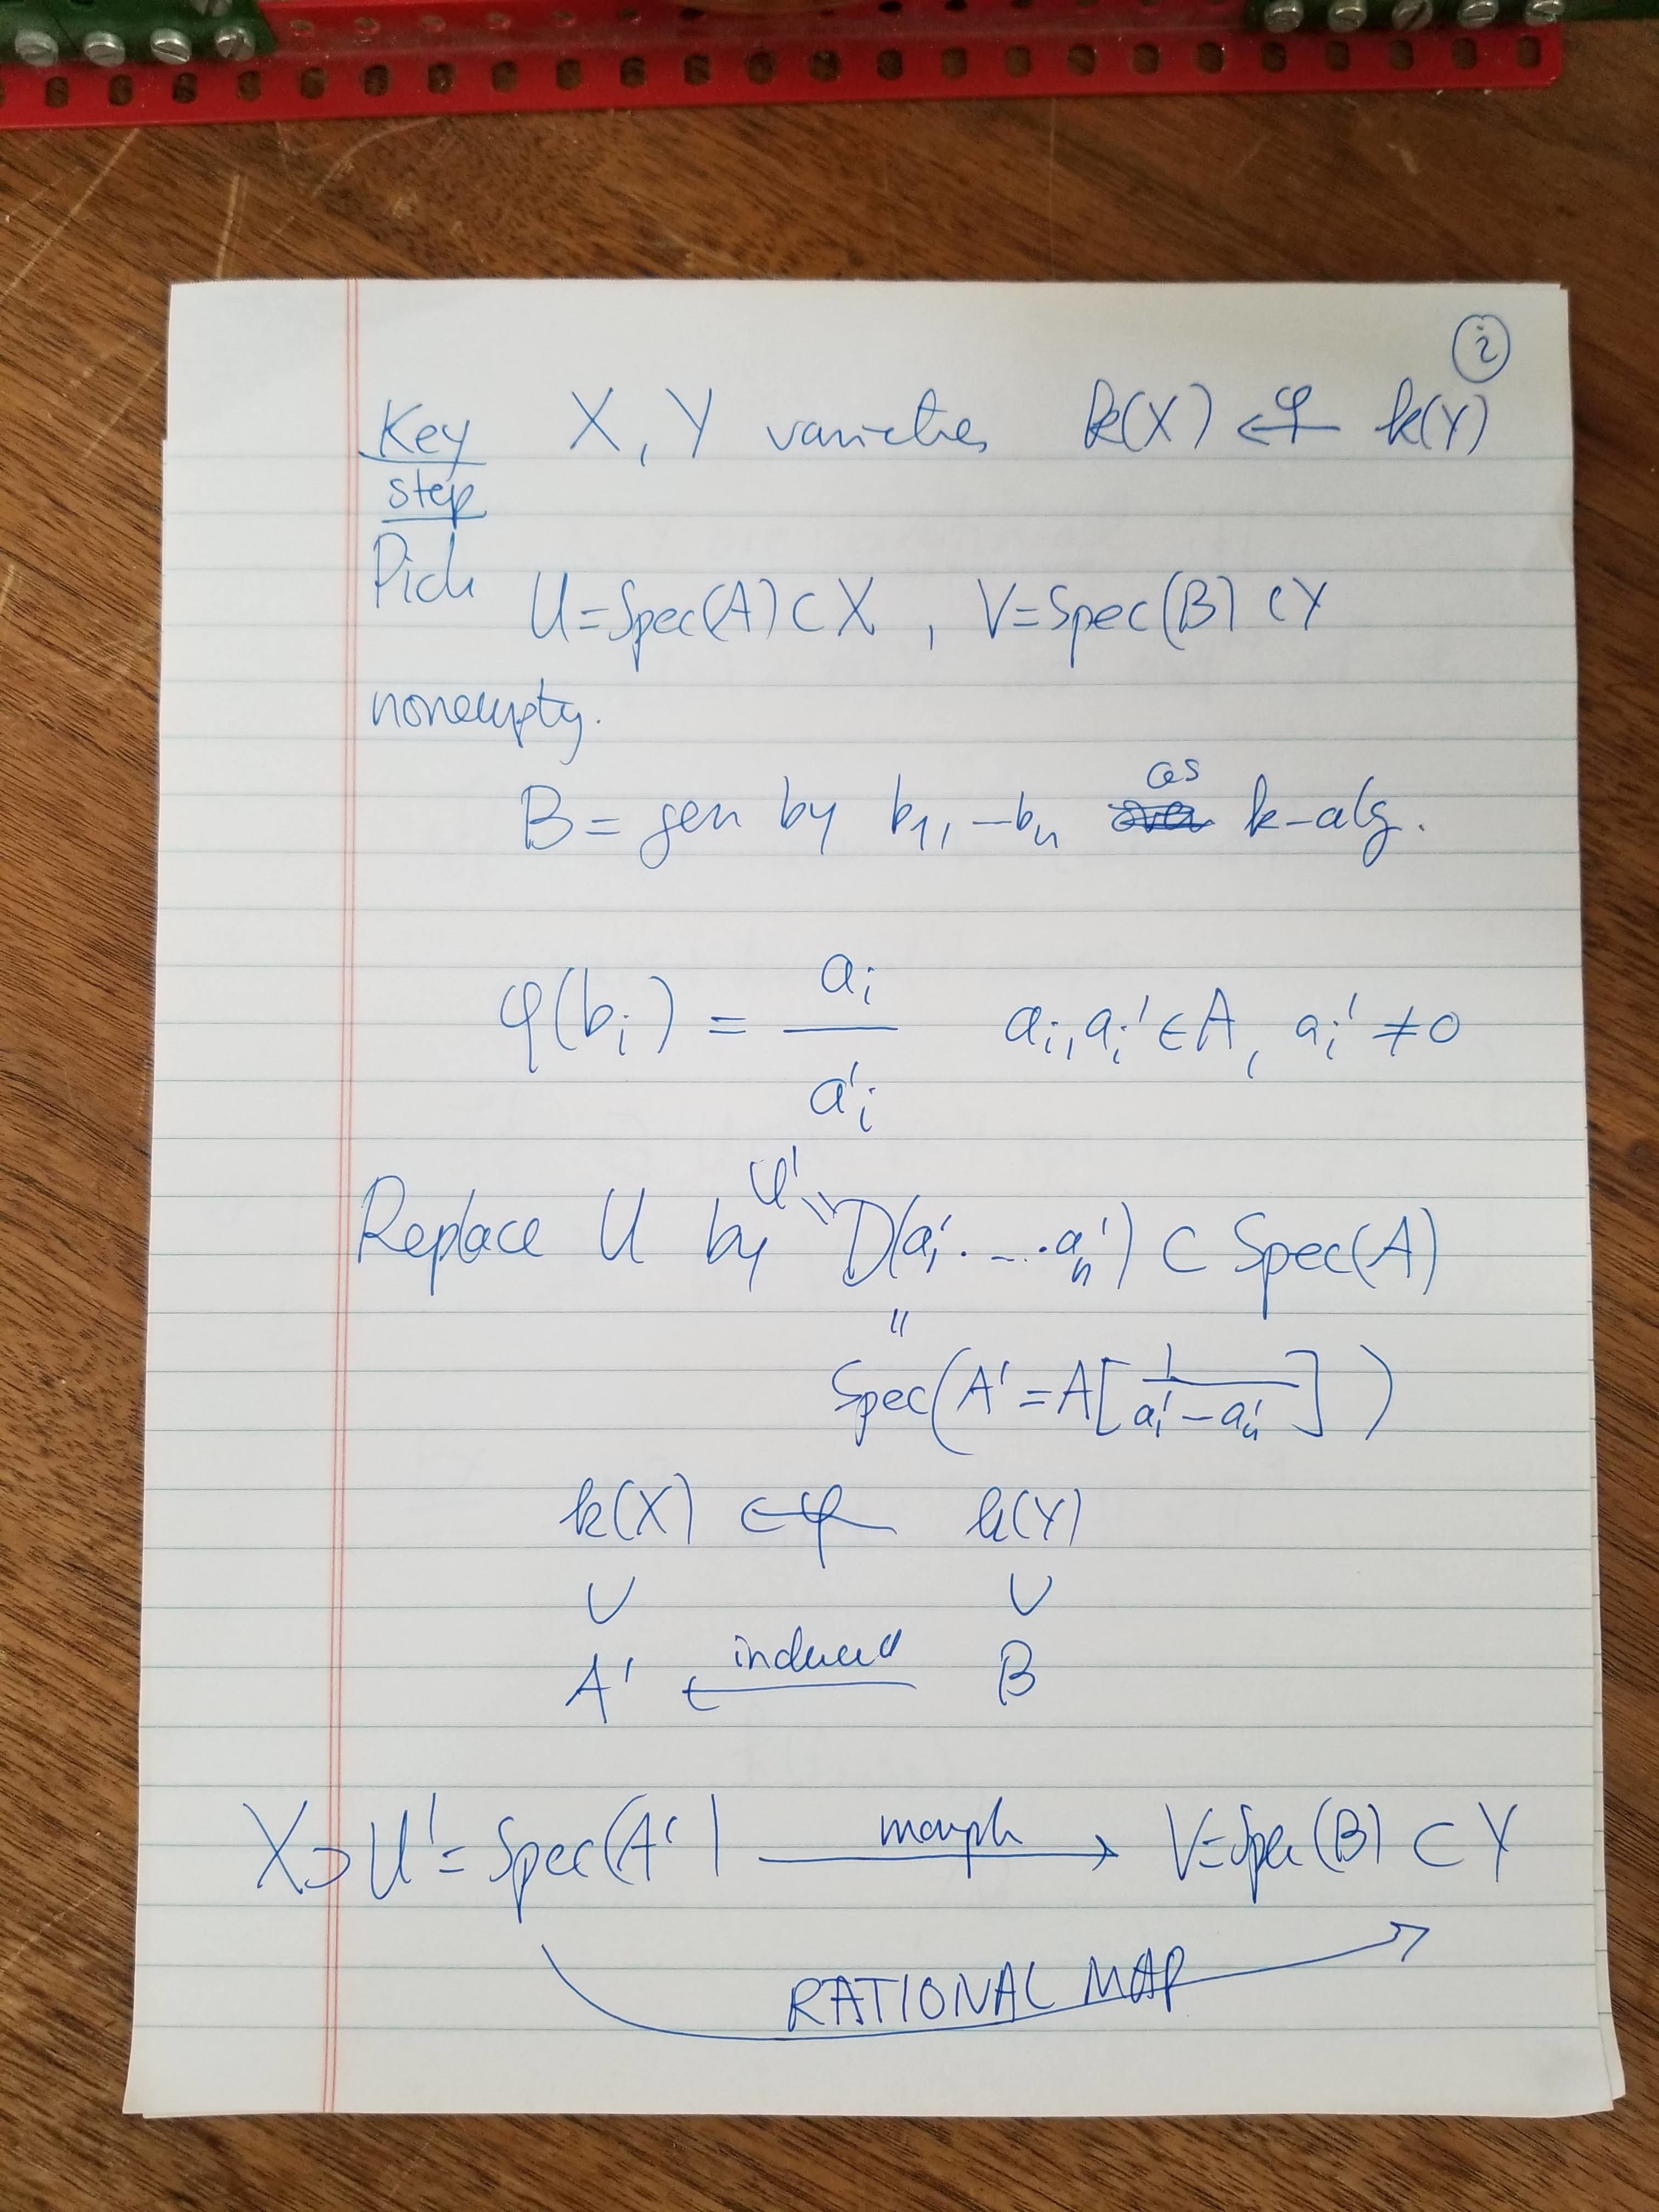 i
Key X, Y varieties k(X) ←φ k(Y)
step
Pick U=Spec(A)⊂X, V=Spec(B)⊂Y
nonempty.
B = gen by b₁,–bₙ o̶v̶e̶r̶ as k-alg.
φ(bᵢ) = aᵢ / a'ᵢ aᵢ, aᵢ' ∈ A, aᵢ' ≠ 0
Replace U by U' = D(a₁'· –– ·aₙ') ⊂ Spec(A)
=
Spec(A' = A[1 / a₁' – aₙ'])
k(X) ←φ k(Y)
∪ ∪
A' ←induced B
X ⊃ U' = Spec(A') —morph→ V=Spec(B) ⊂ Y
RATIONAL MAP